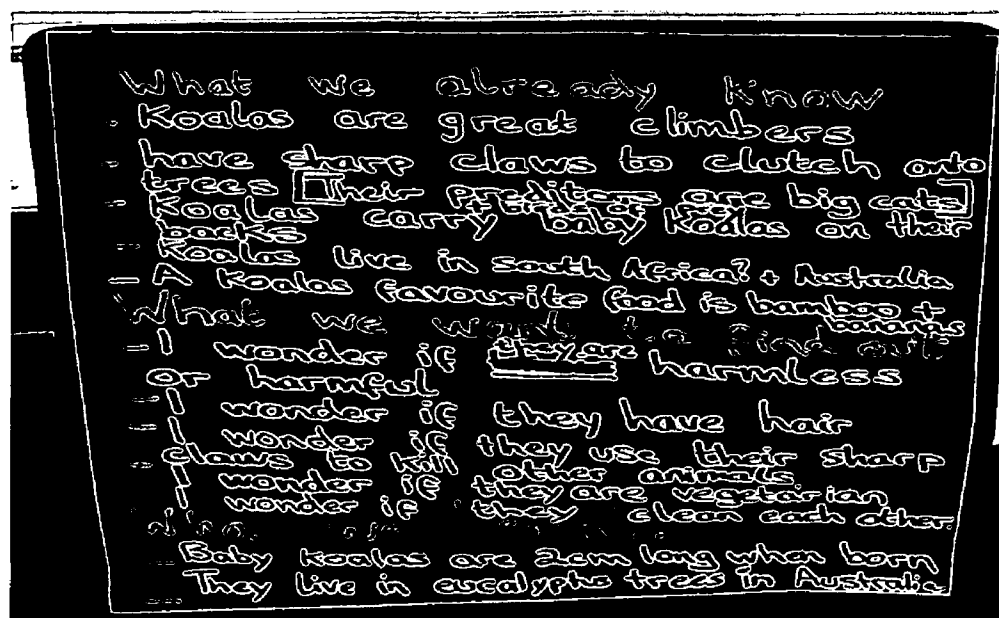 What we already know
- Koalas are great climbers
- have sharp claws to clutch onto
trees [Their preditors are big cats]
Koalas carry baby Koalas on their
backs
- Koalas live in south Africa? + Australia
- A Koalas favourite food is bamboo +
bananas
What we want to find out
- I wonder if they are harmless
or harmful
- I wonder if they have hair
- I wonder if they use their sharp
claws to kill other animals
- I wonder if they are vegetarian
- I wonder if they clean each other.
- Baby Koalas are 2cm long when born
- They live in eucalyptus trees in Australia